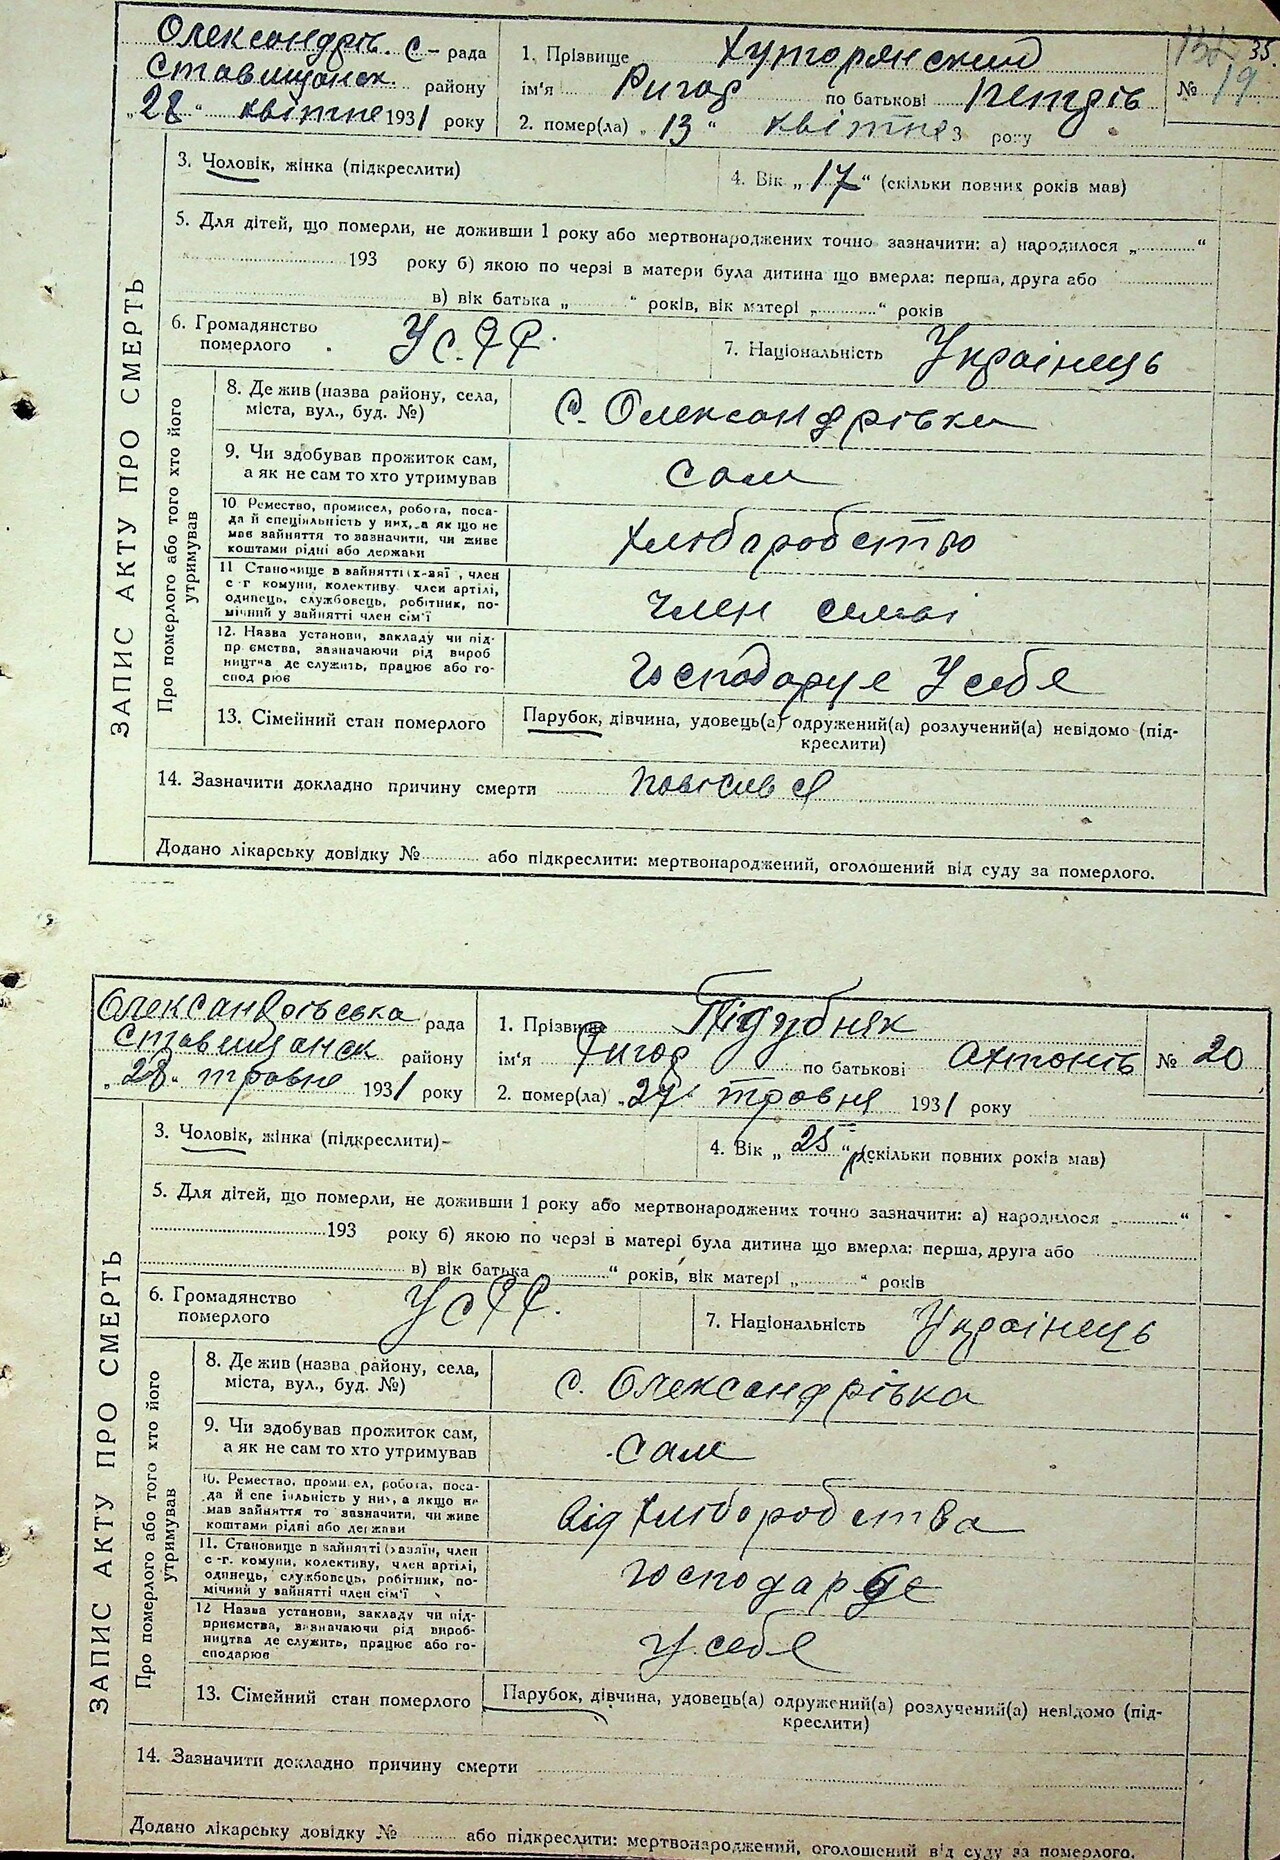 Олександрів. с- рада
Ставищанськ. району
„28“ квітне 1931 року
1. Прізвище Хуторянский
ім'я Ригор по батькові Петрів
2. помер(ла) „13“ квітне 3 року
35.
№ 19
3. Чоловік, жінка (підкреслити)
4. Вік „17“ (скільки повних років мав)
5. Для дітей, що померли, не доживши 1 року або мертвонароджених точно зазначити: а) народилося „............“
193 року б) якою по черзі в матери була дитина що вмерла: перша, друга або
в) вік батька „ “ років, вік матері „ “ років
6. Громадянство
померлого
УСРР.
7. Національність Украінець
ЗАПИС АКТУ ПРО СМЕРТЬ
Про померлого або того хто його
утримував
8. Де жив (назва району, села,
міста, вул., буд. №)
С. Олександрівка
9. Чи здобував прожиток сам,
а як не сам то хто утримував
сам
10 Ремество, промисел, робота, поса-
да й спеціяльність у них, а як що не
має зайняття то зазначити, чи живе
коштами рідні або держави
хлюборобство
11 Становище в зайнятті (х-зяї , член
с-г комуни, колективу член артілі,
одинець, службовець, робітник, по-
мічний у зайнятті член сім'ї
член семьі
12. Назва установи, закладу чи під-
пр ємства, зазначаючи рід вироб
ництва де служить, працює або го-
спод рює
Господарує У себе
13. Сімейний стан померлого
Парубок, дівчина, удовець(а) одружений(а) розлучений(а) невідомо (під-
креслити)
14. Зазначити докладно причину смерти повісився
Додано лікарську довідку № або підкреслити: мертвонароджений, оголошений від суду за померлого.
Олександрівська рада
Ставищанськ району
„28“ травне 1931 року
1. Прізвище Підубняк
ім'я Ригор по батькові Антонів
2. помер(ла) „27“ травня 1931 року
№ 20
3. Чоловік, жінка (підкреслити)-
4. Вік „25“ (скільки повних років мав)
5. Для дітей, що померли, не доживши 1 року або мертвонароджених точно зазначити: а) народилося „............“
193 року б) якою по черзі в матері була дитина що вмерла: перша, друга або
в) вік батька “ років, вік матері „ “ років
6. Громадянство
померлого
УСРР.
7. Національність Украінець
ЗАПИС АКТУ ПРО СМЕРТЬ
Про померлого або того хто його
утримував
8. Де жив (назва району, села,
міста, вул., буд. №)
с. Олександрівка
9. Чи здобував прожиток сам,
а як не сам то хто утримував
сам
10. Ремество, промисел, робота, поса-
да й спе іяльність у них, а якщо не
мав зайняття то зазначити, чи живе
коштами рідні або держави
від хлюборобства
11. Становище в зайнятті (хазяїн, член
с-г. комуни, колективу, член артілі,
одинець, службовець, робітник, по-
мічний у зайнятті член сім'ї
господарює
12 Назва установи, закладу чи під-
приємства, взначаючи рід вироб-
ництва де служить, працює або го-
сподарює
у себе
13. Сімейний стан померлого
Парубок, дівчина, удовець(а) одружений(а) розлучений(а) невідомо (під-
креслити)
14. Зазначити докладно причину смерти
Додано лікарську довідку № або підкреслити: мертвонароджений, оголошений від суду за померлого.